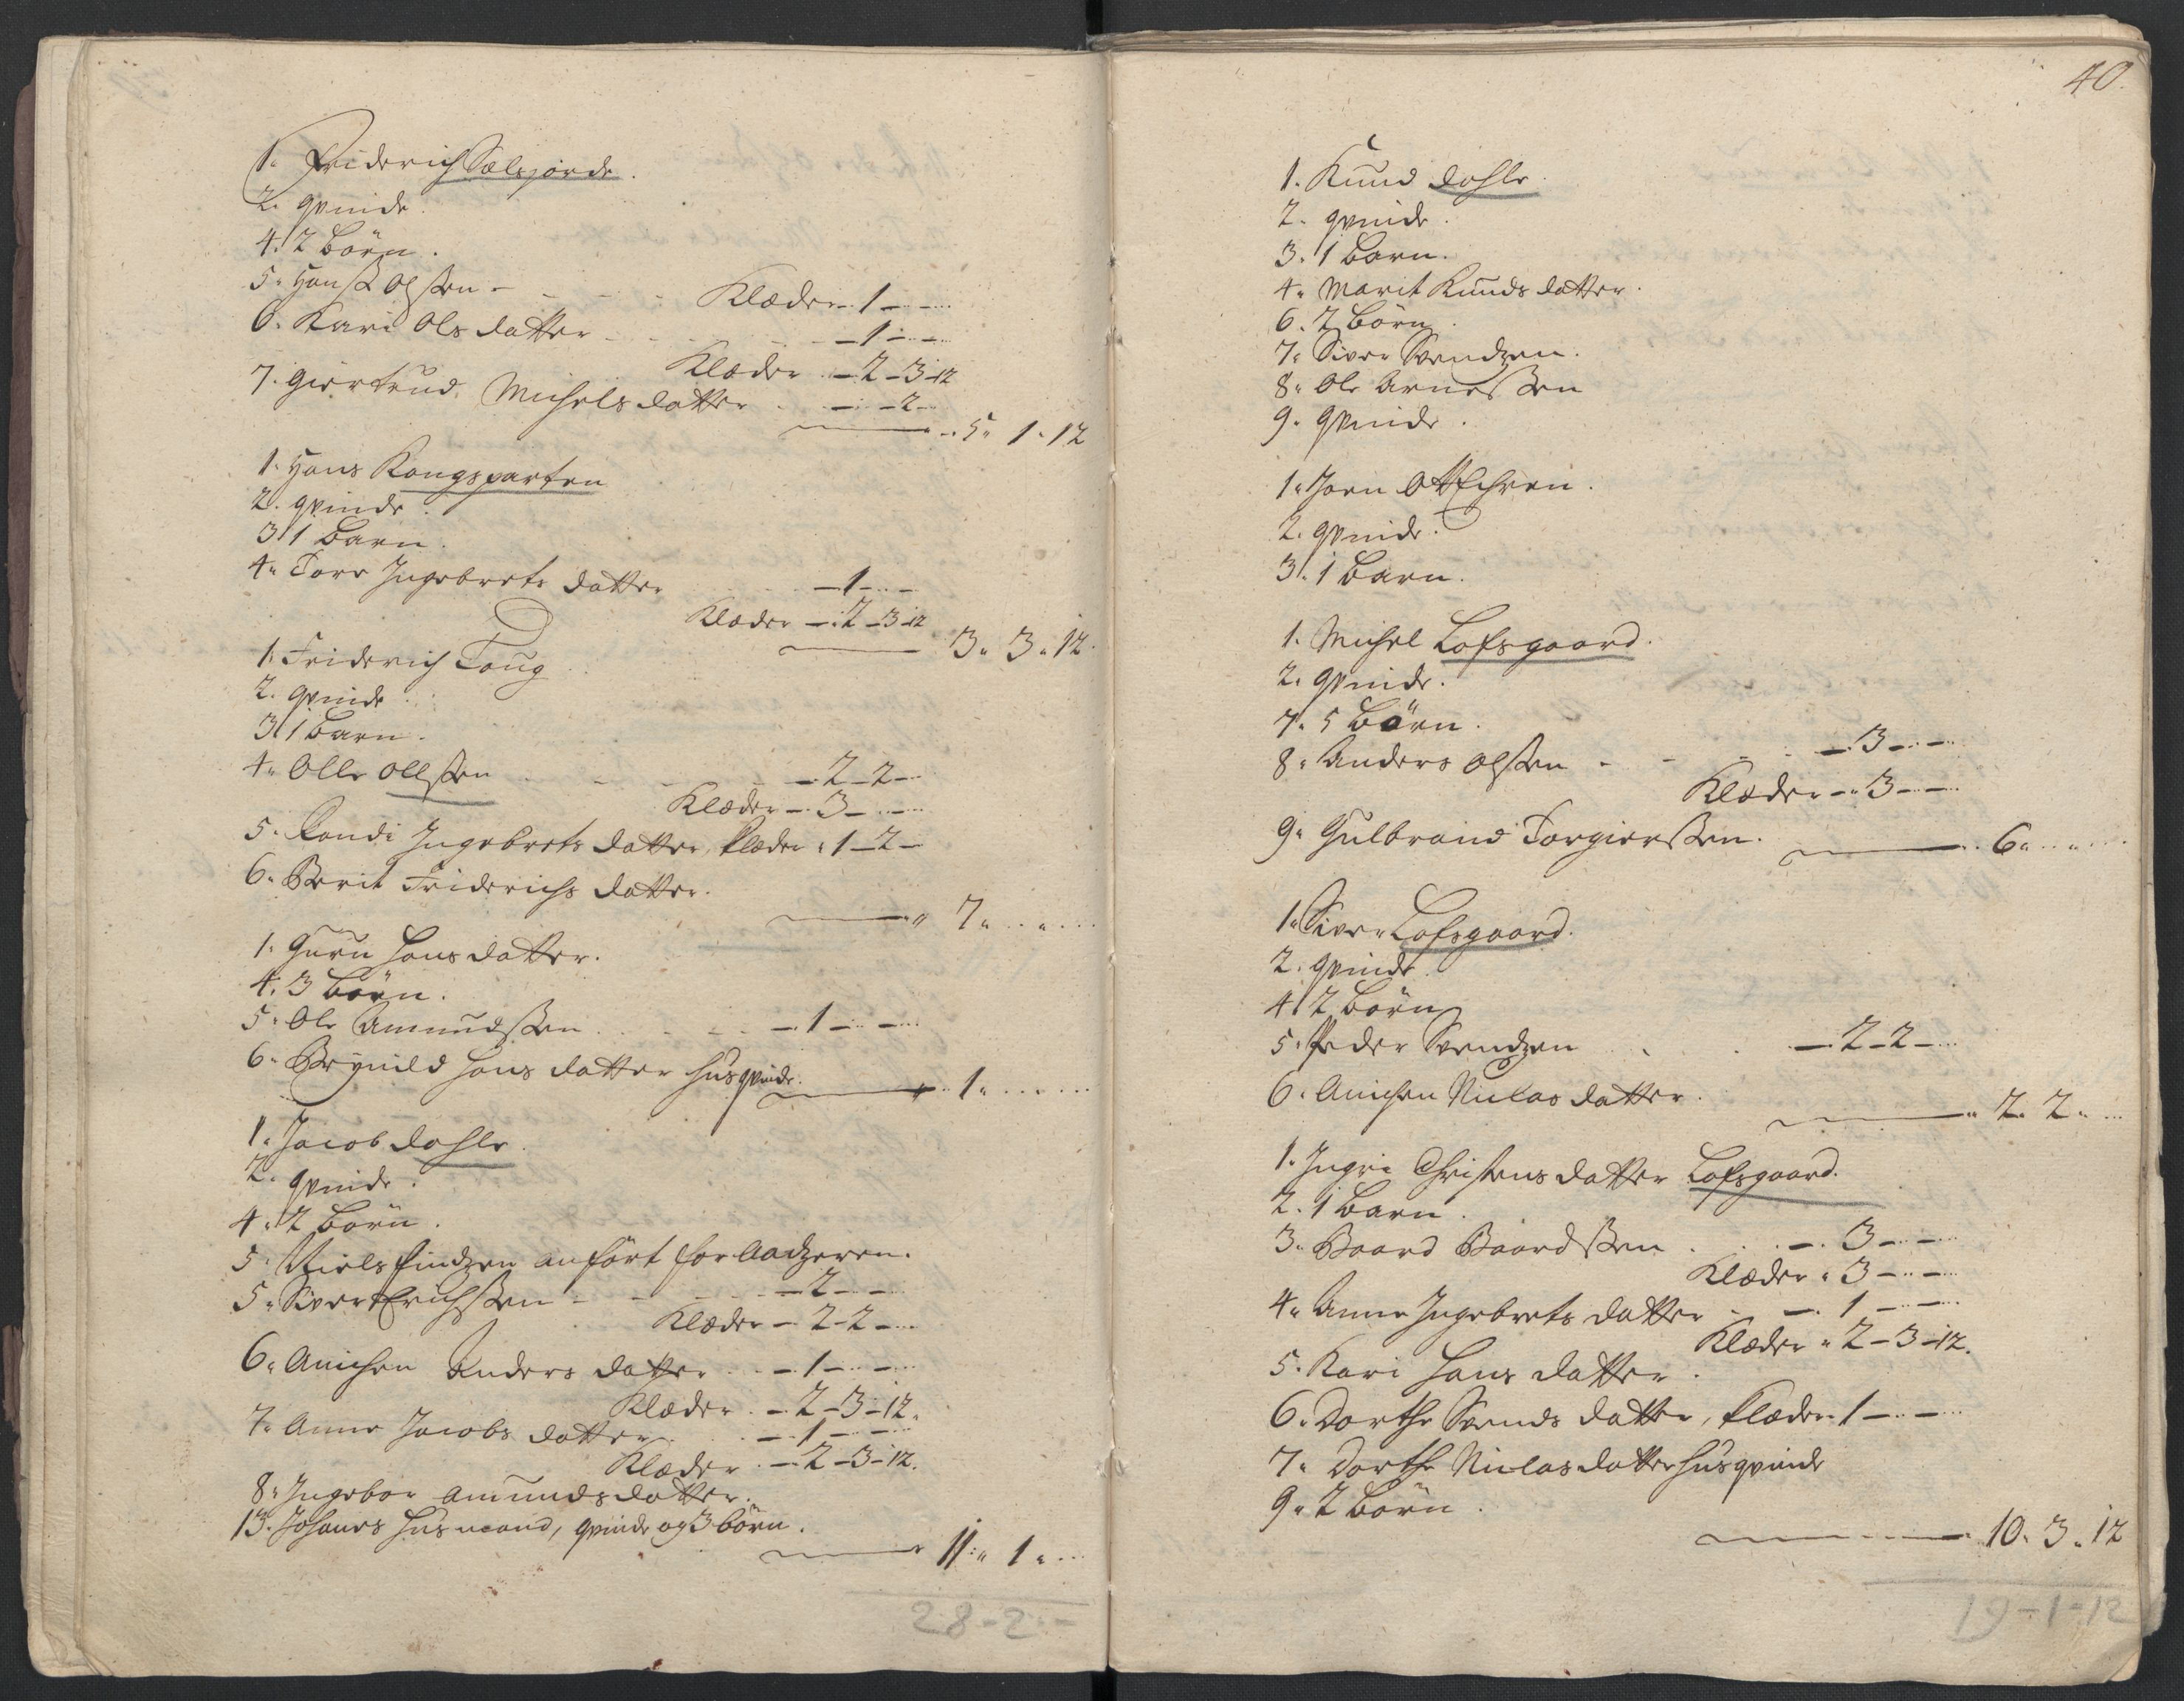 1. Friderich Sælsjorde.
2. qvinde.
4. 2 börn.
5. Hanß Olßen - - - -
Klæder 1 - -
6. Kari Olsdatter - - - 1 - -
Klæder - 2 - 3 - 12
7. Giertrud Michelsdatter - - 2 -
5 " 1 " 12
1. Hans Kongsparten
2. qvinde.
3. 1 barn.
4. Tore Ingebrets datter - 1 - -
Klæder - 2 - 3 - 12
3 " 3 " 12
1. Friderich Toug
2. qvinde.
3. 1 barn.
4. Olle Olßen - - - 2 - 2 -
Klæder - 3 - -
5. Randi Ingebrets datter, klæder " 1 - 2 -
6. Berit Friderichs datter.
7 "
1. Guru Hans datter.
4. 3 börn.
5. Ole Amundßen - - 1 - -
6. Brynild Hans datter husqvinde.
1 "
1. Jacob Dahle.
2. qvinde.
4. 2 börn.
5. Niels Findzen anfört for Aadzeren.
5. Siver Erichßen - - - 2 - -
Klæder - 2 - 2 -
6. Anichen Anders datter - 1 - -
Klæder - 2 - 3 - 12.
7. Anne Jacobs datter - 1 - -
Klæder - 2 - 3 - 12.
8. Ingebor Amunds datter.
13. Johanes husmand, qvinde og 3 börn.
11 " 1 "
28 - 2 -
40.
1. Knud Dahle.
2. qvinde.
3. 1 barn.
4. Marit Knuds datter.
6. 2 börn.
7. Siver Svendzen.
8. Ole Arneßen
9. qvinde.
1. Joen
2. qvinde.
3. 1 barn.
1. Michel Lofsgaard.
2. qvinde.
7. 5 börn.
8. Anders Olßen - - - 3 - -
Klæder - 3 - -
9. Gulbrand Torgierßen.
6 "
1. Siver Lofsgaard.
2. qvinde.
4. 2 börn
5. Peder Svendzen - 2 - 2 -
6. Anichen Niclas datter.
2 " 2 "
1. Ingri Christens datter Lofsgaard.
2. 1 barn.
3. Baard Baardßen - 3 - -
Klæder " 3 - -
4. Anne Ingebrets datter - 1 - -
Klæder " 2 - 3 - 12.
5. Kari Hans datter.
6. Dorthe Svends datter, klæder 1 - -
7. Dorthe Niclas datter husqvinde
9. 2 börn.
10 " 3 " 12
19 - 1 - 12